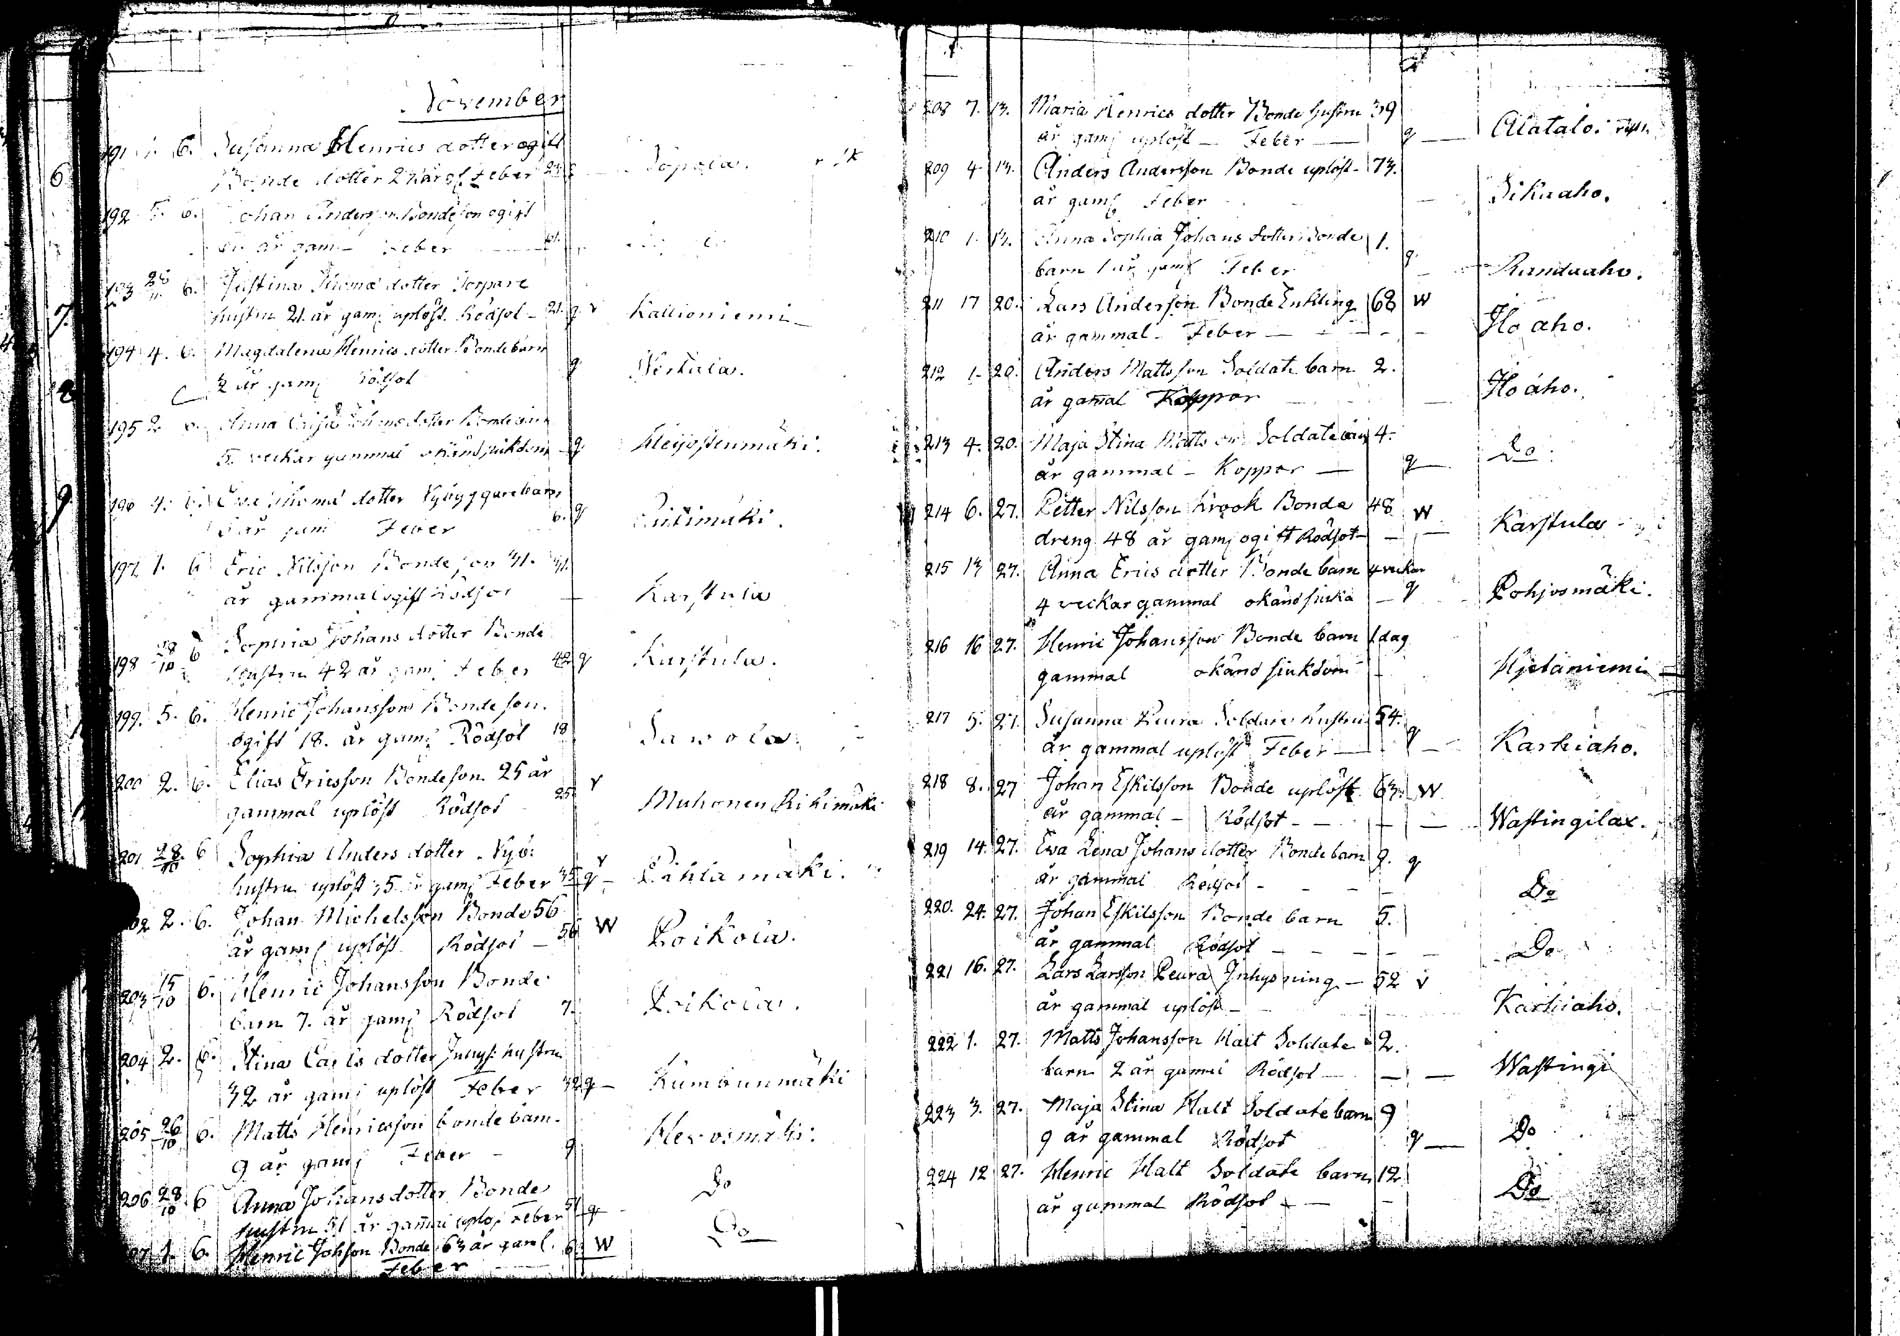 November
191 6. Susanna Henrics dotter ogift
Bonde dotter år Feber Sopola.
192 5. 6. Johan Anderson Bondeson ogift
år gam Feber
193 28 6. Justina Thoma dotter Torpare
hustru 21. år gam uplöst. Rödsot - 21. q v Kallioniemi
194 4. 6. Magdalena Henrics dotter Bonde barn
2 år gam Rödsot q Wertala.
195 2 Anna dotter Bonde barn
5. veckar gammal okänd siukdom q Heijostenmäki.
196 4. 6. Eva Thoma dotter Nybyggare barn
år gam Feber 6. q
197 1. 6 Eric Nilsson Bonde son 31. 31.
år gammal ogift Rödsot Karstula
198 28/10 6 Sophia Johans dotter Bonde
hustru 42 år gam Feber 42 q Karstula.
199. 5. 6. Henric Johansson Bonde son.
ogift 18. år gam Rödsot 18 Sawola.
200 2. 6. Elias Ericsson Bondeson. 25 år
gammal uplöst Rödsot 25 v Muhonen Rikimäki
201 28/10 6 Sophia Anders dotter Nyb:
hustru uplöst 35 år gam Feber 35 q v Pihlamäki.
202 2. 6. Johan Michelsson Bonde 56
år gam uplöst Rödsot - 56 W Poikola.
203 15/10 6. Henric Johansson Bonde
barn 7. år gam Rödsot 7. Poikola.
204 2. 6. Stina Carls dotter Inhys: hustru
32 år gam uplöst Feber 32 q - Kumbunmäki
205 26/10 6. Matts Henricsson bonde barn.
9 år gam Feber - 9. Hevosmäki.
206 28/10 6 Anna Johans dotter Bonde
hustru 51 år gamal uplöst Feber 51 q Do
1. 6. Henric Johsson Bonde 63 år gaml. W Do
Feber
208 7. 13. Maria Henrics dotter Bonde hustru 39
år gam uplöst - Feber q Alatalo.
209 4. 13. Anders Andersson Bonde uplöst - 73.
år gam Feber Sikaaho.
210 1. 13. Anna Sophia Johans dotter Bonde 1.
barn 1 år gam Feber q Randaaho.
211 17 20. Lars Anderson Bonde Enkling 68 W
år gammal - Feber - Iloaho.
212 1. 20. Anders Mattsson Soldate barn 2.
år gamal Koppor Iloaho.
213 4. 20. Maja Stina Matts Soldate barn 4.
år gammal - Koppor - q Do.
214 6. 27. Petter Nilsson Krook Bonde 48 W
dreng 48 år gam ogift Rödsot - Karstula
215 13 27. Anna Erics dotter Bonde barn 4 veckar
4 veckar gammal okänd siuka q Pohjosmäki.
216 16 27. Henric Johansson Bonde barn 1 dag
gammal okänd siukdom Hjetaniemi
217 5. 27. Susanna Peura Soldate hustru 54.
år gammal uplöst Feber q Karhiaho.
218 8. 27 Johan Eskilsson Bonde uplöst 63. W
år gammal - Rödsot - Wastingilax.
219 14. 27. Eva Lena Johans dotter Bonde barn 9. q
år gammal Rödsot - Do
220. 24. 27. Johan Eskilsson Bonde barn 5.
år gammal Rödsot Do
221 16. 27. Lars Larsson Peura Inhysning - 52 v
år gammal uplöst - Karhiaho.
222 1. 27. Matts Johansson Halt Soldate 2.
barn 2 år gamal Rödsot Wastingi
223 3. 27. Maja Stina Halt Soldate barn 9
9 år gammal Rödsot q Do
224 12 27. Henric Halt Soldate barn 12
år gammal Rödsot - Do